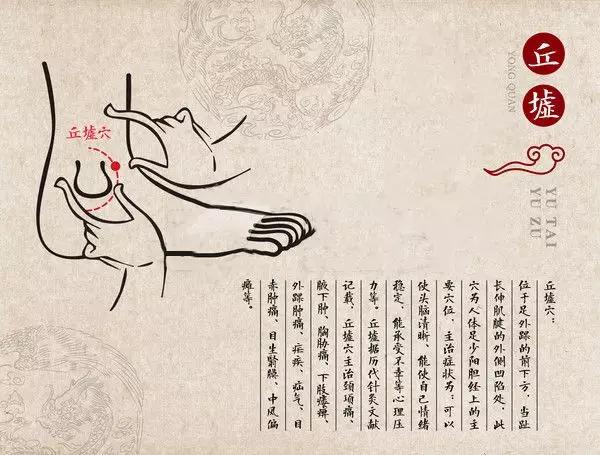 丘墟
YONG QUAN
YU TAI
YU ZU
丘墟穴
丘墟穴：
位于足外踝的前下方，当趾
长伸肌腱的外侧凹陷处，此
穴为人体足少阳胆经上的主
要穴位，主治症状为：可以
使头脑清晰、能使自己情绪
稳定、能承受不幸等心理压
力等。丘墟据历代针灸文献
记载，丘墟穴主治颈项痛、
腋下肿、胸胁痛、下肢痿痹、
外踝肿痛、疟疾、疝气、目
赤肿痛、目生翳膜、中风偏
瘫等。